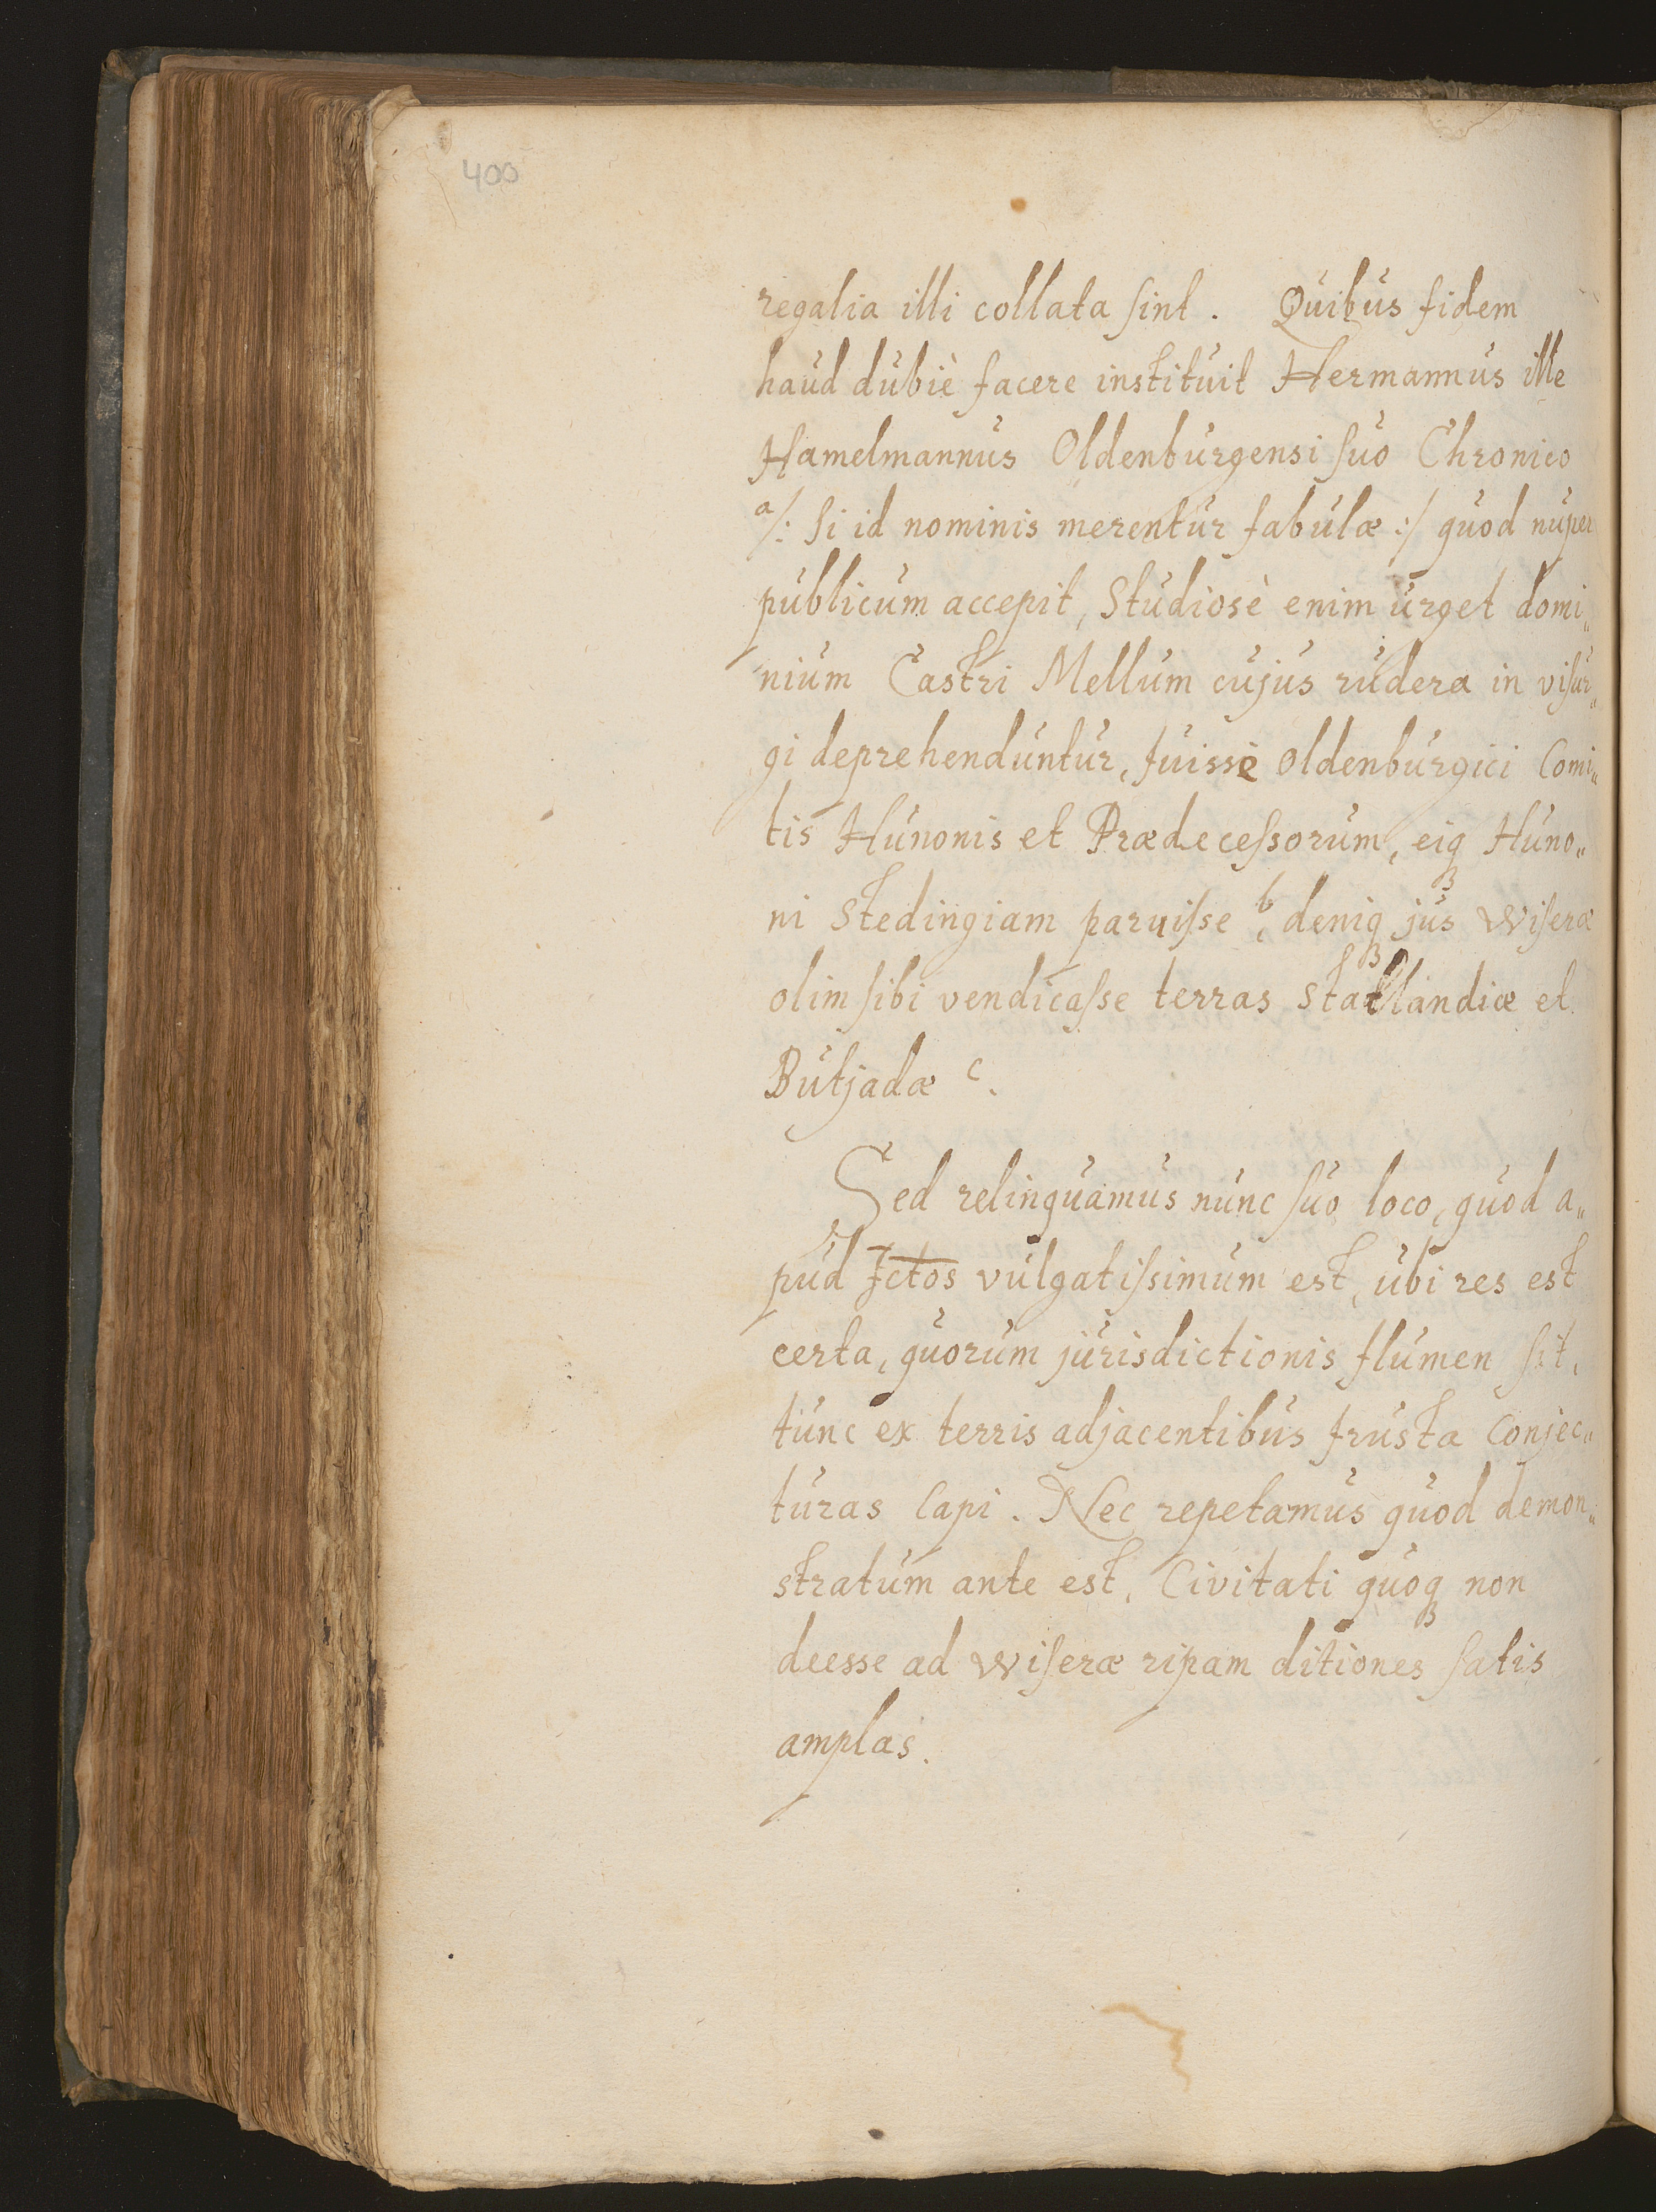 400
regalia illi collata sint. Quibus fidem
haud dubiè facere instituit Hermannus ille
Hamelmannus Oldenburgensi suo Chronico
a/: Si id nominis merentur fabulæ :/ quod nuper
publicum accepit, Studiosè enim urget domi„
nium Castri Mellum cujus rudera in visur„
gi deprehenduntur, fuisse Oldenburgici Comi„
tis Hunonis et Prædecessorum, eiqꝫ Huno„
ni Stedingiam paruisse b, deniqꝫ jus Wiseræ
olim sibi vendicasse terras Statlandiæ et
Butjadæ c.
Sed relinquamus nunc suo loco, quod a„
pud Jctos vulgatissimum est, ubi res est
certa, quorum jurisdictionis flumen sit,
tunc ex terris adjacentibus frusta Conjec„
turas Capi. Nec repetamus quod demon„
stratum ante est, Civitati quoqꝫ non
deesse ad Wiseræ ripam ditiones satis
amplas.